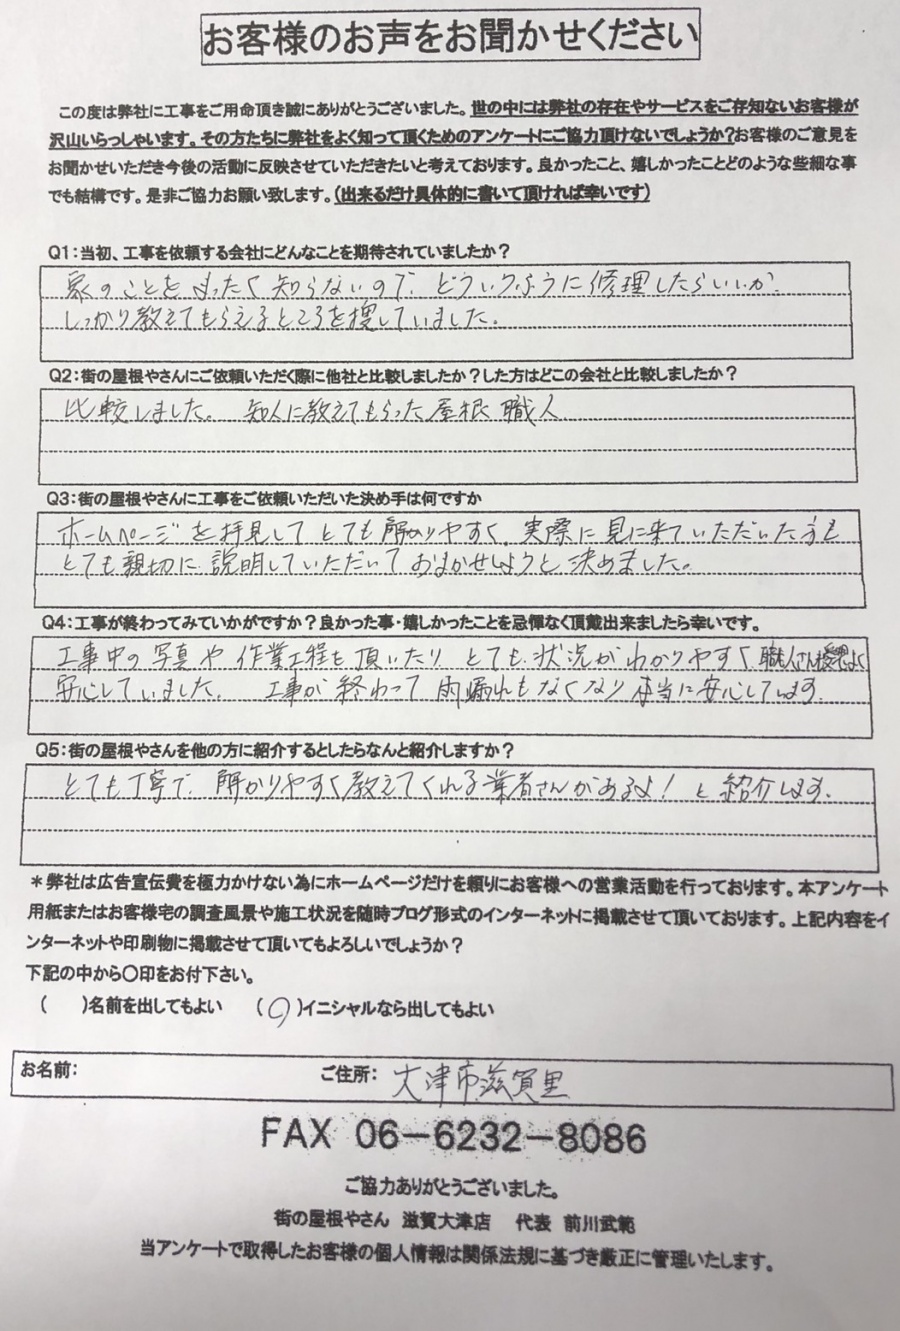 お客様のお声をお聞かせください
この度は弊社に工事をご用命頂き誠にありがとうございました。世の中には弊社の存在やサービスをご存知ないお客様が
沢山いらっしゃいます。その方たちに弊社をよく知って頂くためのアンケートにご協力頂けないでしょうか?お客様のご意見を
お聞かせいただき今後の活動に反映させていただきたいと考えております。良かったこと、嬉しかったことどのような些細な事
でも結構です。是非ご協力お願い致します。(出来るだけ具体的に書いて頂ければ幸いです)
Q1:当初、工事を依頼する会社にどんなことを期待されていましたか?
家のことをまったく知らないので、どういうふうに修理したらいいか、
しっかり教えてもらえるところを捜していました。
Q2:街の屋根やさんにご依頼いただく際に他社と比較しましたか?した方はどこの会社と比較しましたか?
比較しました。 知人に教えてもらった屋根職人
Q3:街の屋根やさんに工事をご依頼いただいた決め手は何ですか
ホームページを拝見してとても解かりやすく、実際に見に来ていただいた方も
とても親切に説明していただいておまかせしようと決めました。
Q4:工事が終わってみていかがですか?良かった事・嬉しかったことを忌憚なく頂戴出来ましたら幸いです。
工事中の写真や作業工程も頂いたり、とても状況がわかりやすく職人さん
安心していました。 工事が終わって雨漏れもなくなり本当に安心しています。
Q5:街の屋根やさんを他の方に紹介するとしたらなんと紹介しますか?
とても丁寧で、解かりやすく教えてくれる業者さんがあるよ!と紹介します。
*弊社は広告宣伝費を極力かけない為にホームページだけを頼りにお客様への営業活動を行っております。本アンケート
用紙またはお客様宅の調査風景や施工状況を随時ブログ形式のインターネットに掲載させて頂いております。上記内容をイ
ンターネットや印刷物に掲載させて頂いてもよろしいでしょうか?
下記の中から〇印をお付下さい。
( )名前を出してもよい (○)イニシャルなら出してもよい
お名前: ご住所: 大津市滋賀里
FAX 06-6232-8086
ご協力ありがとうございました。
街の屋根やさん 滋賀大津店 代表 前川武範
当アンケートで取得したお客様の個人情報は関係法規に基づき厳正に管理いたします。